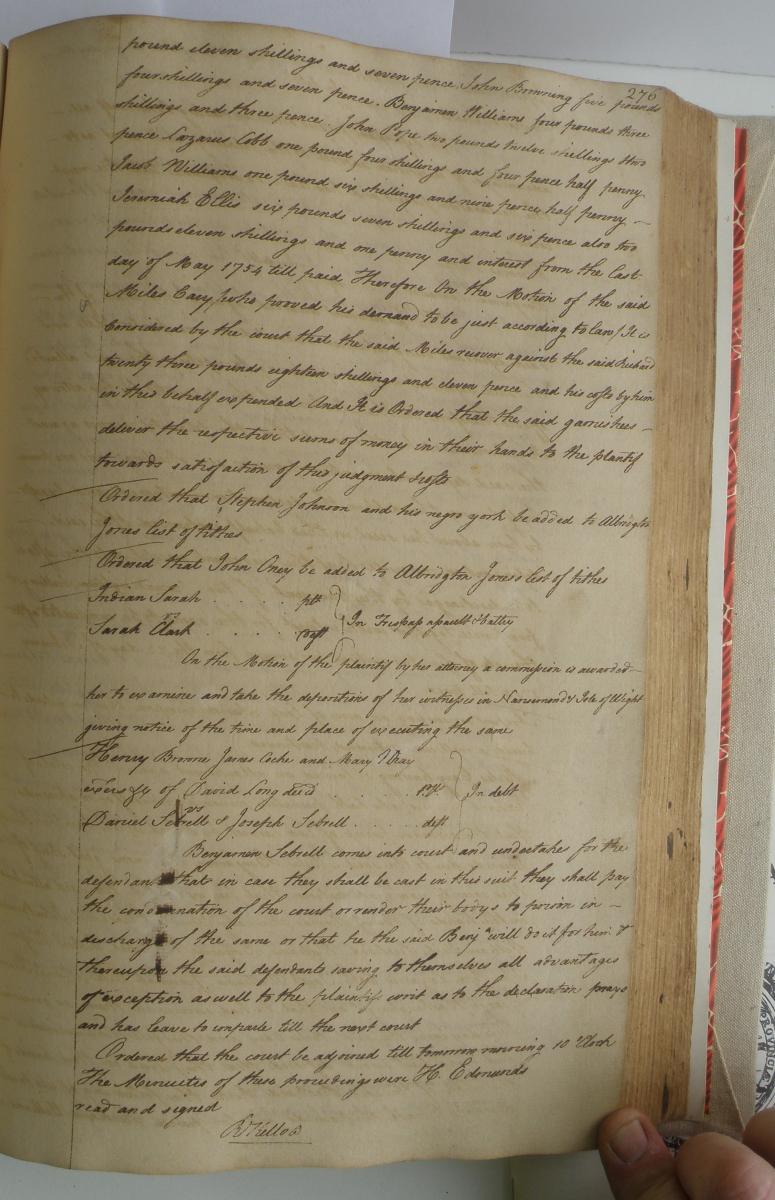 276
pound eleven shillings and seven pence John Browning five pounds
four shillings and seven pence. Benjamin Williams four pounds three
shillings and three pence. John Pope two pounds twelve shillings two
pence Lazarus Cobb one pound four shillings and four pence half penny
Jacob Williams one pound six shillings and nine pence half penny —
Jeremiah Ellis six pounds seven shillings and six pence also two
pounds eleven shillings and one penny and interest from the last
day of May 1754 till paid Therefore On the Motion of the said
Miles Cary, who proved his demand to be just according to law, It is
Considered by the court that the said Miles recover against the said Richard
twenty three pounds eighteen shillings and eleven pence and his costs by him
in this behalf expended And It is Ordered that the said garnishees —
deliver the respective sums of money in their hands to the plantif
towards satisfaction of this judgment & costs
Ordered that Stephen Johnson and his negro york be added to Albridgton
Jones list of tithes
Ordered that John Oney be added to Albridgton Joness list of tithes
Indian Sarah . . . . . plt
vs
Sarah Clark . . . . . deft
In Trespass assault & battry
On the Motion of the plaintif by her attorney a commission is awarded —
her to examine and take the depositions of her witnesses in Nansemond & Isle of Wight
giving notice of the time and place of executing the same
Henry Browne James Cocke and Mary Gray
exers &c of David Long decd . . . . . plt.
In debt
vs
Daniel Sebrell & Joseph Sebrell . . . . . deft
Benjamin Sebrell comes into court and undertakes for the
defendants that in case they shall be cast in this suit they shall pay
the condemnation of the court or render their bodys to prison in —
discharge of the same or that he the said Benja will do it for him &
thereupon the said defendants saving to themselves all advantages
of exception as well to the plaintifs writ as to the declaration prays
and has leave to imparle till the next court
Ordered that the court be adjoined till tomorrow morning 10 Clock
The Menuetes of these proceedings were H. Edmunds
read and signed
R Kello